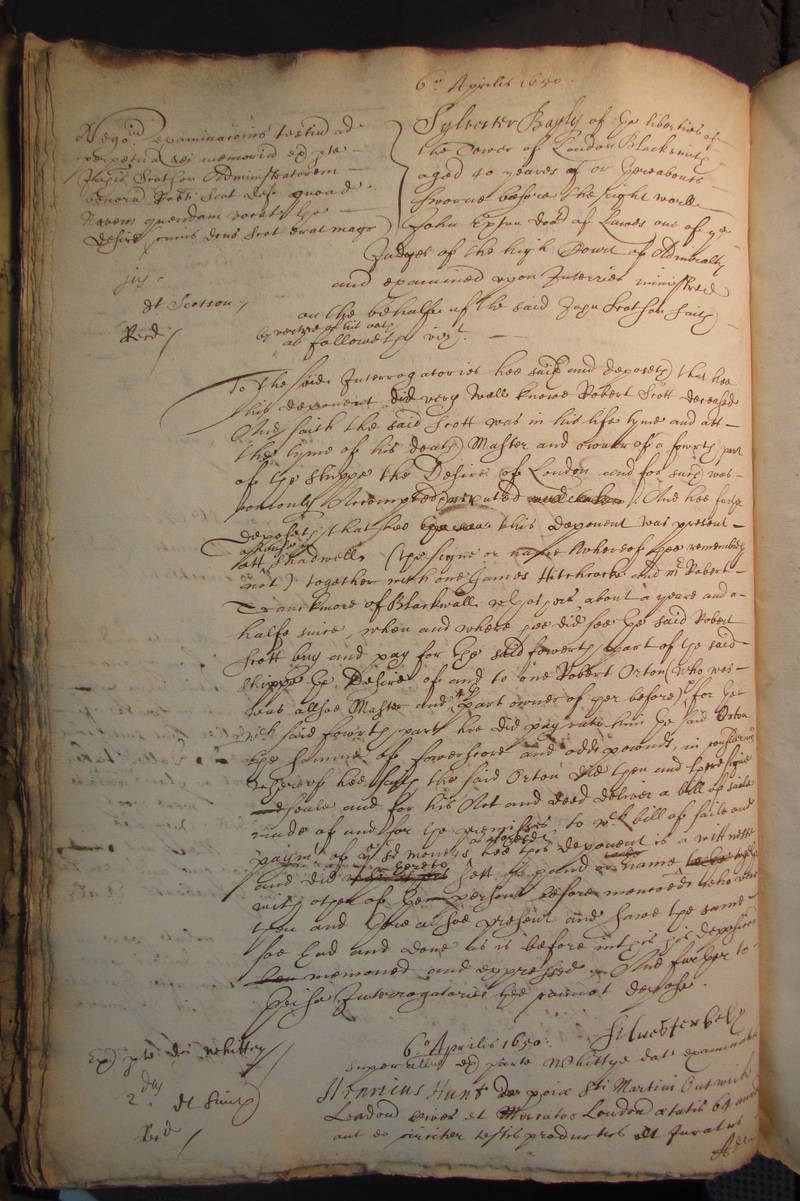 6o Aprilis 1650.
Nego: examinacionis testiu ad
perpetua rei memoria ex pte
Scotson Administratorem
bonoru Robti Scot quoad
Navem quendam vocat the
Desire cuius dcus Scot erat magr
Sylvester Bayly of the liberties of
the Tower of London Blacksmith
aged 40 yeares or thereabouts
sworne before the right worll
John Exton doctr of Lawes one of ye
Judges of the high Court of Admiralty
and examined upon Interries ministred
on the behalfe of the said Scotson saith
by vertue of his oath
as followeth vizt.
jus
dt Scotson
Rird
To the said Interrogatories hee saith and deposeth that hee
this deponent did very well knowe Robert Scott deceased
And saith the said Scott was in his life tyme and att
the tyme of his death Master and owner of a fowrth part
of the shippe the Desire of London and for such was
comonly Accompted reputed and taken. And hee further
deposeth that hee this deponent was present
att Shadwell (the signe or name whereof hee remembreth
not) together with one James Hitchcocke and mr Robert
Tranckmore of Blackwall about a yeare and a
halfe since, when and where hee did see the said Robert
Scott buy and pay for the said fowrth part of the said
shippe the Desire of and to one Robert Orton (who was
allsoe Master and part owner of her before) for the
wch said fowrth part hee did pay unto him the said Orton
the summe of fowerscore and odde pounds, in
whereof hee saith the said Orton did then and there signe
seale and for his Act and deed deliver a bill of saile
made of and for the premisses, to wch bill of saile and
paymt of ye sd moneys hee this deponent is a wittnesse
and did thereto sett his hand or name
with other of the persons before menconed who were
then and there alsoe present and sawe the same
soe had and done as is before in this his deposicon
menconed and expressed. And further to
theise Interrogatories hee cannot depose.
Silvester bely
6o Aprilis 1650.
super ex parte Whittye examinatus
Ex pte dni Whittey
2. dt Smith
Rird
Henricus Hunt poiae Sti Martini Outwich
London civis et London aetatis 64 annor
aut eo circiter testis productus et Juratus